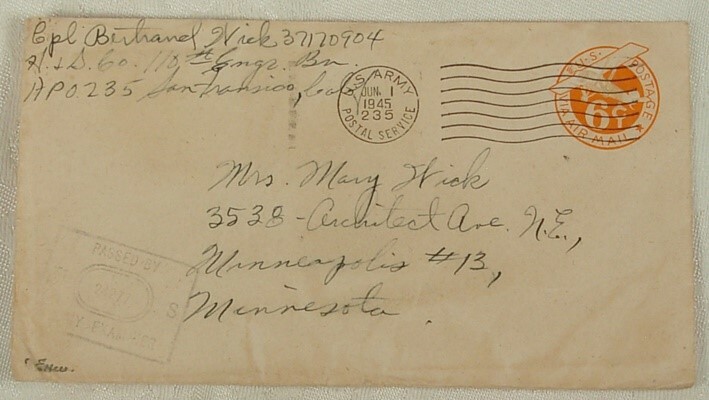 Cpl Bertrand Wick 37170904
H. & S. Co. 110th Engr. Bn.
APO. 235 San Fransico, Calif.
U.S. ARMY
JUN. 1
1945
235
POSTAL SERVICE
U.S. POSTAGE
6¢
VIA AIR MAIL
Mrs. Mary Wick
3538 - Architect Ave. N.E.,
Minneapolis #13,
Minnesota.
PASSED BY
S
ARMY EXAMINER